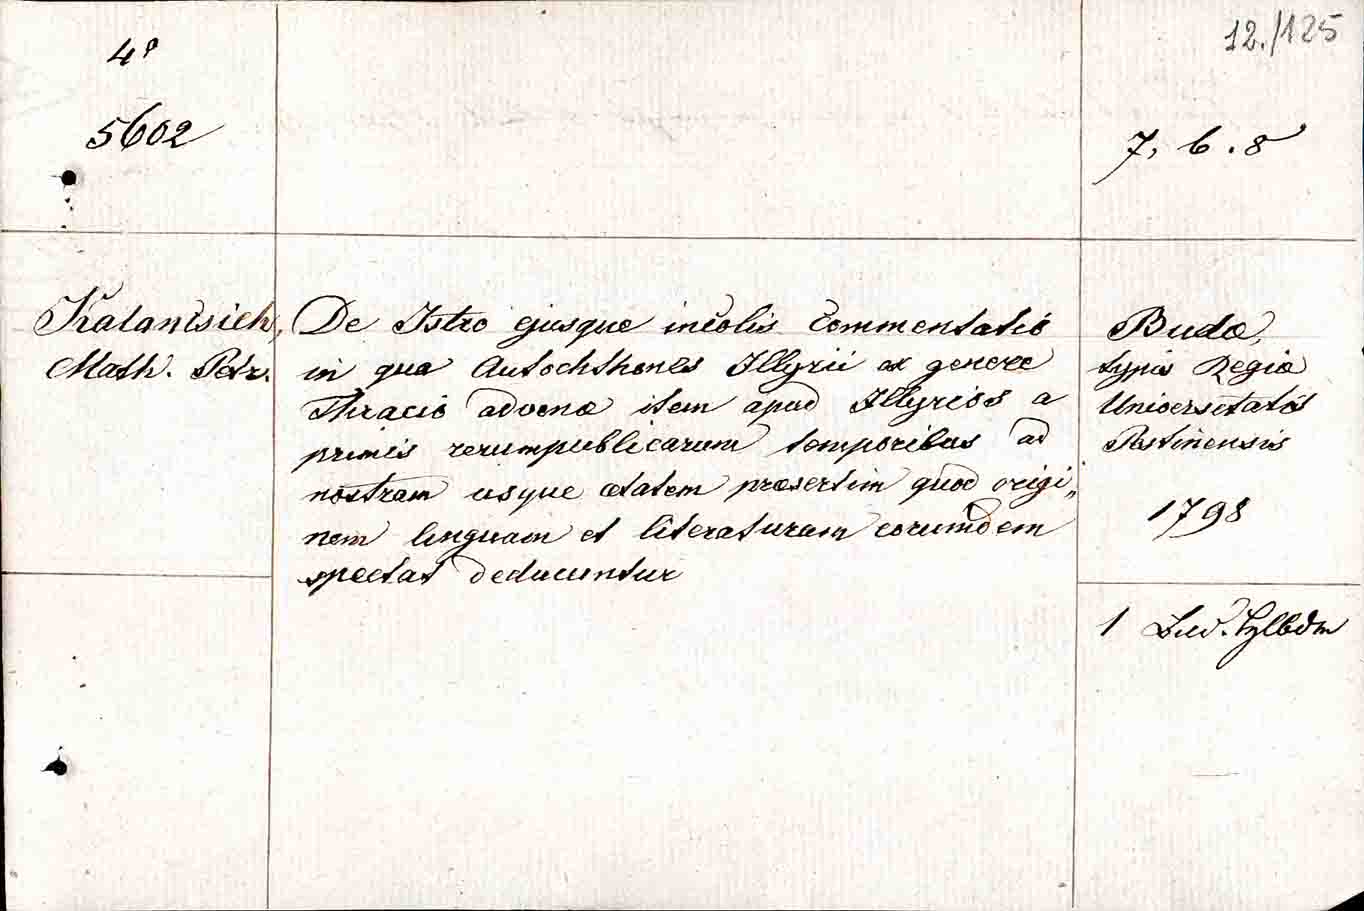 12./125
4°
5602
7, b. 8
Katantsich,
Math. Petr.
De Istro ejusque incolis Commentatio
in qua Autochthones Illyrii ex genere
Thracio advenae item apud Illyrios a
primis rerumpublicarum temporibus ad
nostram usque aetatem praesertim quod origi„
nem linguam et literaturam eorumdem
spectat deducuntur
Budae,
typis Regiae
Universitatis
Pestinensis
1798
1